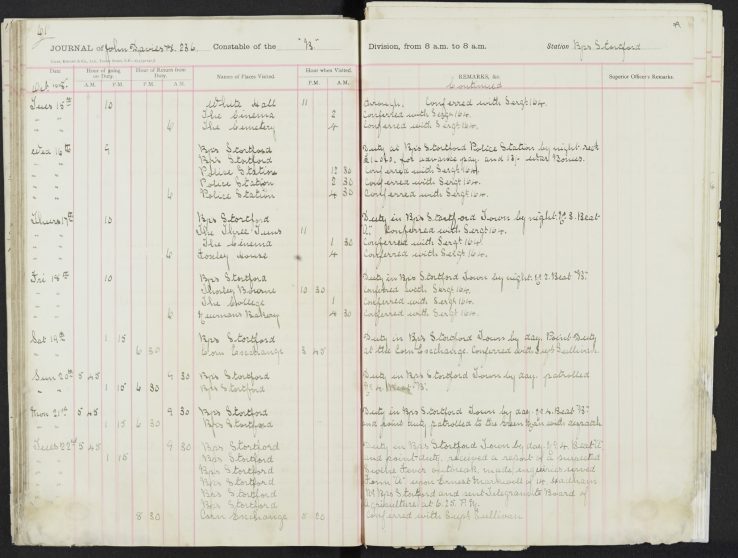 JOURNAL of John Davies 236 Constable of the "B" Division, from 8 a.m. to 8 a.m. Station Bps Stortford
Date Hour of going on Duty. Hour of Return from Duty. Names of Places Visited. Hour when Visited. REMARKS, &c. Superior Officer's Remarks.
A.M. P.M. P.M. A.M. P.M. A.M. Continued
Tues 15th 10 White Hall 11 Conferred with Sergt 164.
" " The Cinema 2 Conferred with Sergt 164.
" " 6 The Cemetery 4 Conferred with Sergt 164.
Wed 16th 9 Bps Stortford Duty at Bps Stortford Police Station by night.
" " Bps Stortford for advance pay and War Bonus.
" " Police Station 12 30 Conferred with Sergt 164
" " Police Station 2 30 Conferred with Sergt 164.
" " 6 Police Station 4 30 Conferred with Sergt 164.
Thurs 17th 10 Bps Stortford Duty in Bps Stortford Town by night. No 3. Beat
" " The Three Tuns 11 Conferred with Sergt 164.
" " The Cinema 1 30 Conferred with Sergt 164.
" " 6 House 4 Conferred with Sergt 164.
Fri 18th 10 Bps Stortford Duty in Bps Stortford Town by night. No 2. Beat "B".
" " Thorley Bourne 10 30 Conferred with Sergt 164.
" " The College 1 Conferred with Sergt 164.
" " 6 Newmans Bakery 4 30 Conferred with Sergt 164.
Sat 19th 1 15 Bps Stortford Duty in Bps Stortford Town by day. Point Duty
" " 6 30 Corn Exchange 3 45 at the Corn Exchange. Conferred with Supt Sullivan.
Sun 20th 5 45 9 30 Bps Stortford Duty in Bps Stortford Town by day. patrolled
" " 1 15 6 30 Bps Stortford No 4. Beat "B".
Mon 21st 5 45 9 30 Bps Stortford Duty in Bps Stortford Town by day. No 4. Beat "B"
" " 1 15 6 30 Bps Stortford and point duty, patrolled to the with despatch
Tues 22nd 5 45 9 30 Bps Stortford Duty in Bps Stortford Town by day. No 4. Beat
" " 1 15 Bps Stortford and point duty. received a report of a suspected
Bps Stortford Swine Fever outbreak, made enquiries served
Bps Stortford Form "A" upon Ernest Markwell of Hadham
Bps Stortford Rd Bps Stortford and sent telegram to Board of
Bps Stortford Agriculture at 6.25. P.M.
8 30 Corn Exchange 5 20 Conferred with Supt Sullivan